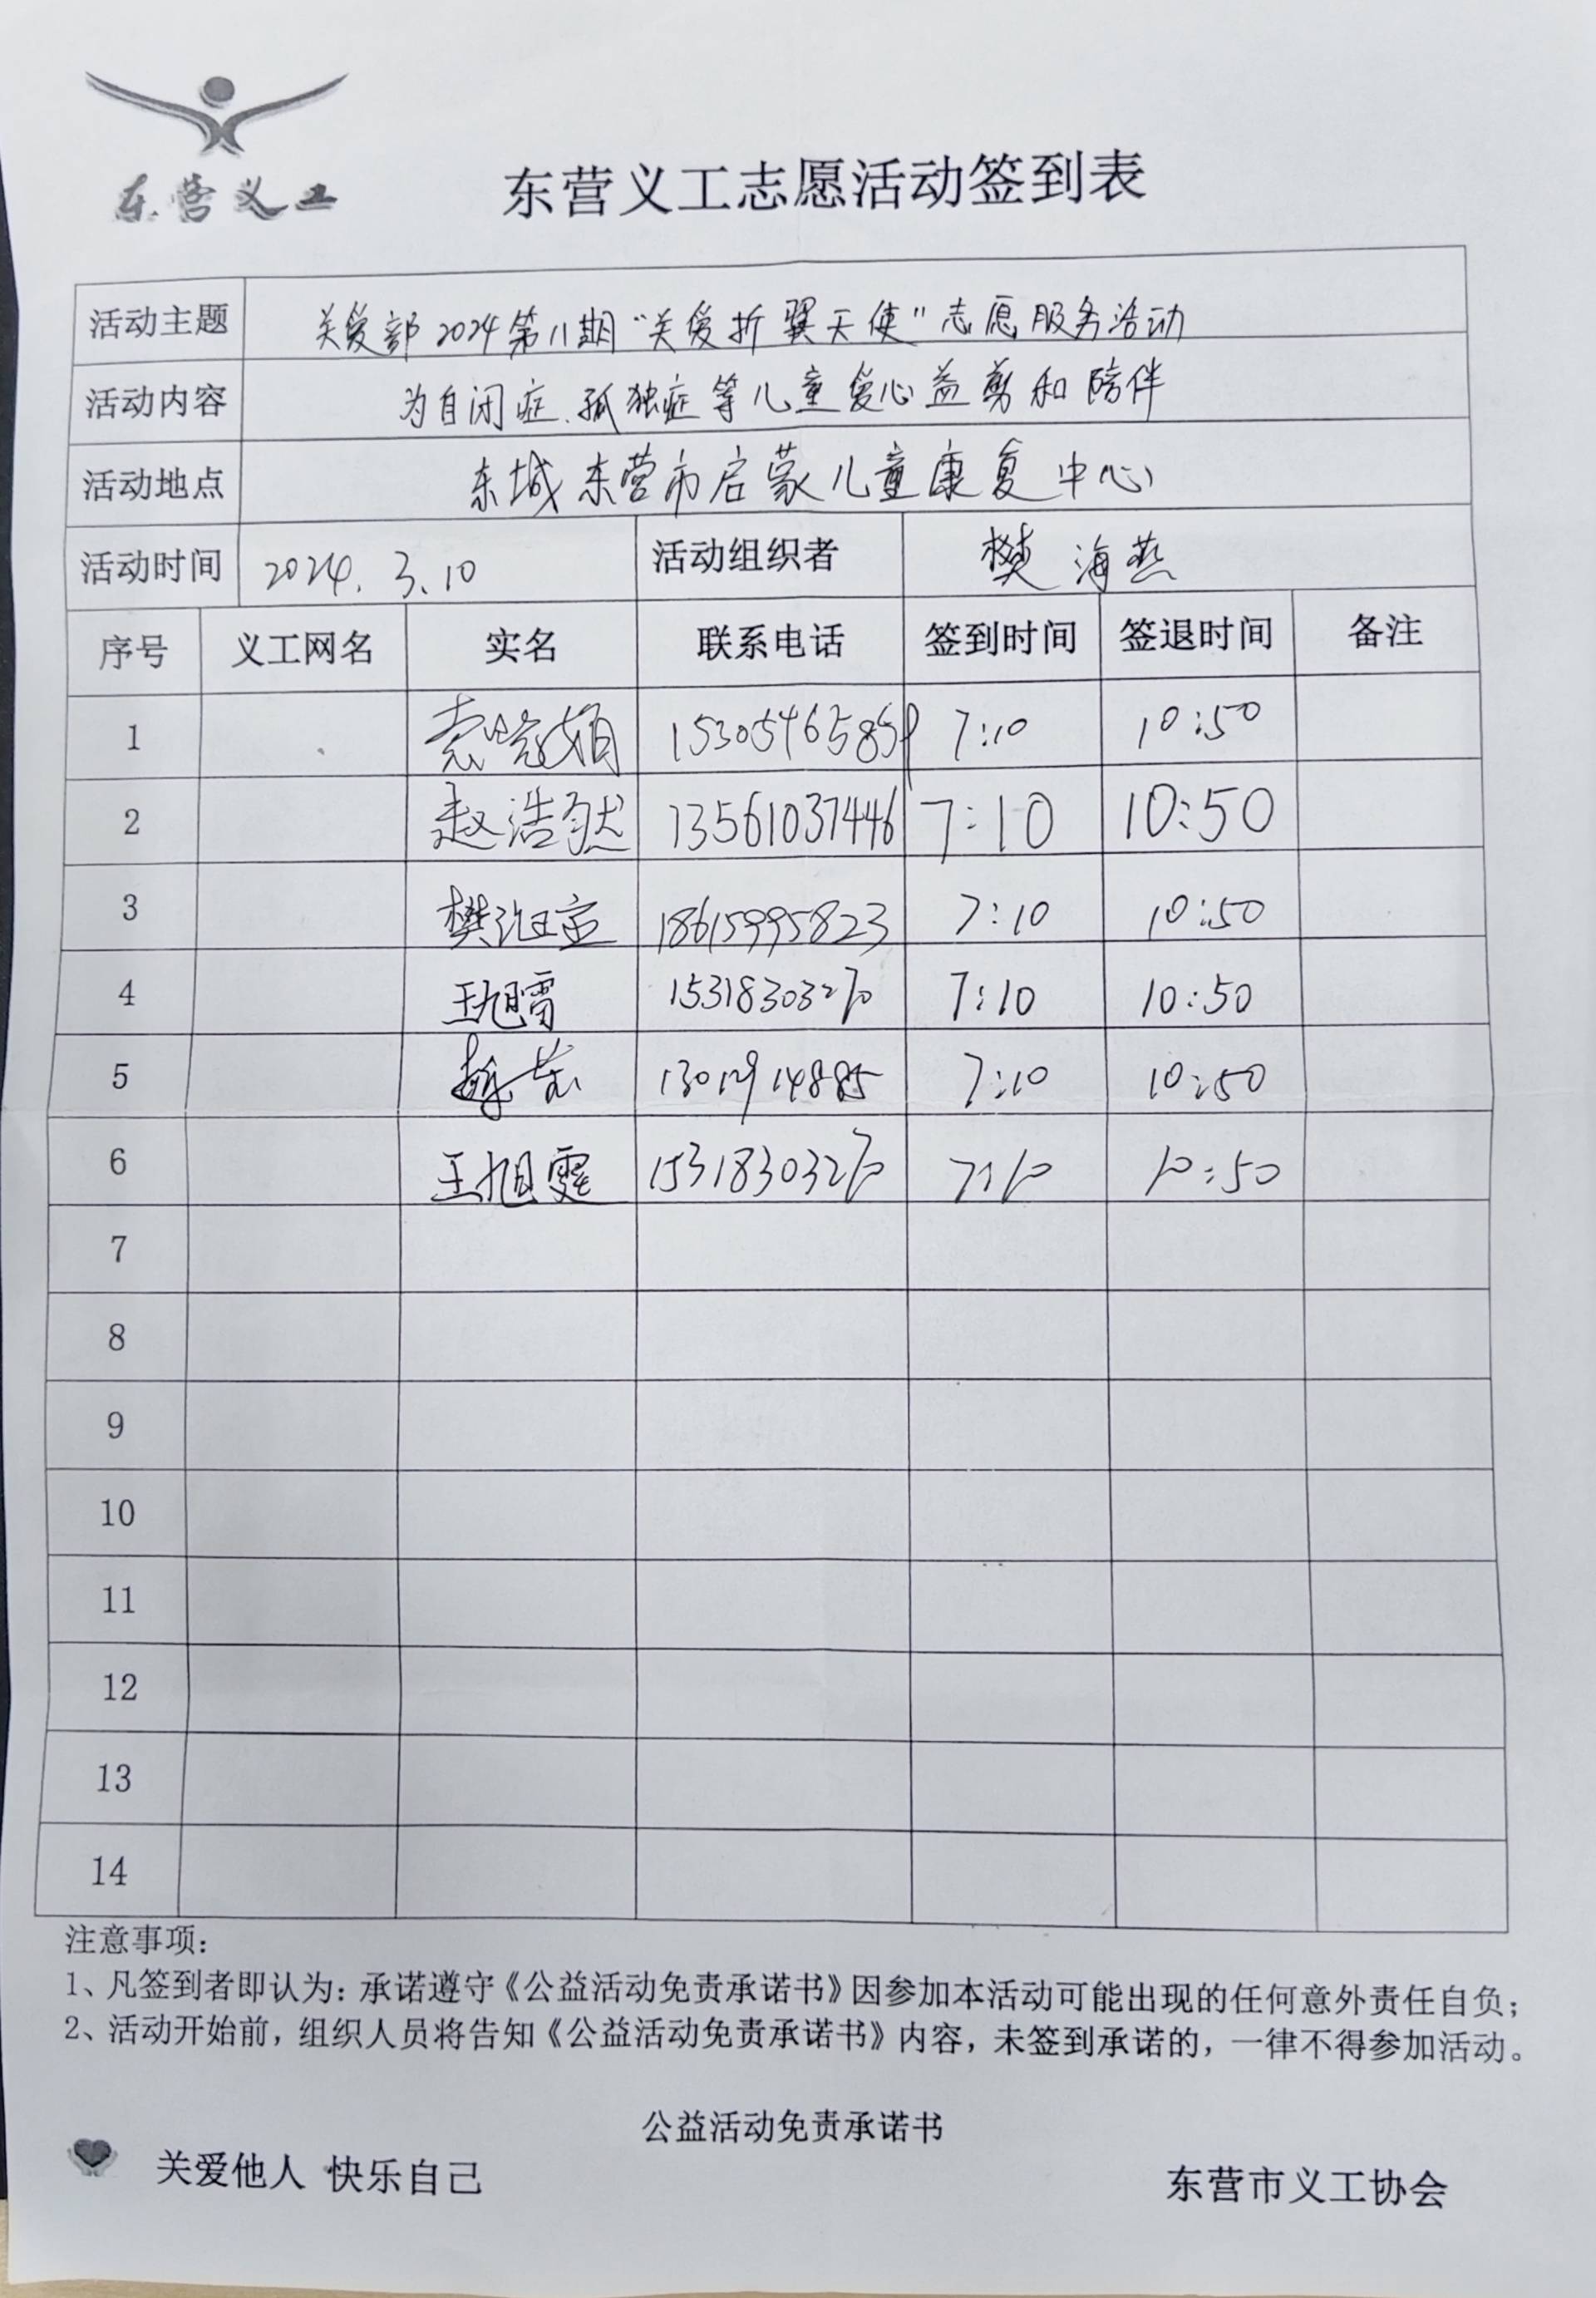 东营义工
东营义工志愿活动签到表
活动主题 关爱部2024第11期“关爱折翼天使”志愿服务活动
活动内容 为自闭症、孤独症等儿童爱心益剪和陪伴
活动地点 东城东营市启蒙儿童康复中心
活动时间 2024.3.10 活动组织者 樊海燕
序号 义工网名 实名 联系电话 签到时间 签退时间 备注
1 7:10 10:50
2 赵浩然 13561037446 7:10 10:50
3 18615995823 7:10 10:50
4 王旭雪 15318303270 7:10 10:50
5 7:10 10:50
6 王旭霆 15318303270 7:10 10:50
7
8
9
10
11
12
13
14
注意事项：
1、凡签到者即认为：承诺遵守《公益活动免责承诺书》因参加本活动可能出现的任何意外责任自负；
2、活动开始前，组织人员将告知《公益活动免责承诺书》内容，未签到承诺的，一律不得参加活动。
公益活动免责承诺书
关爱他人 快乐自己 东营市义工协会